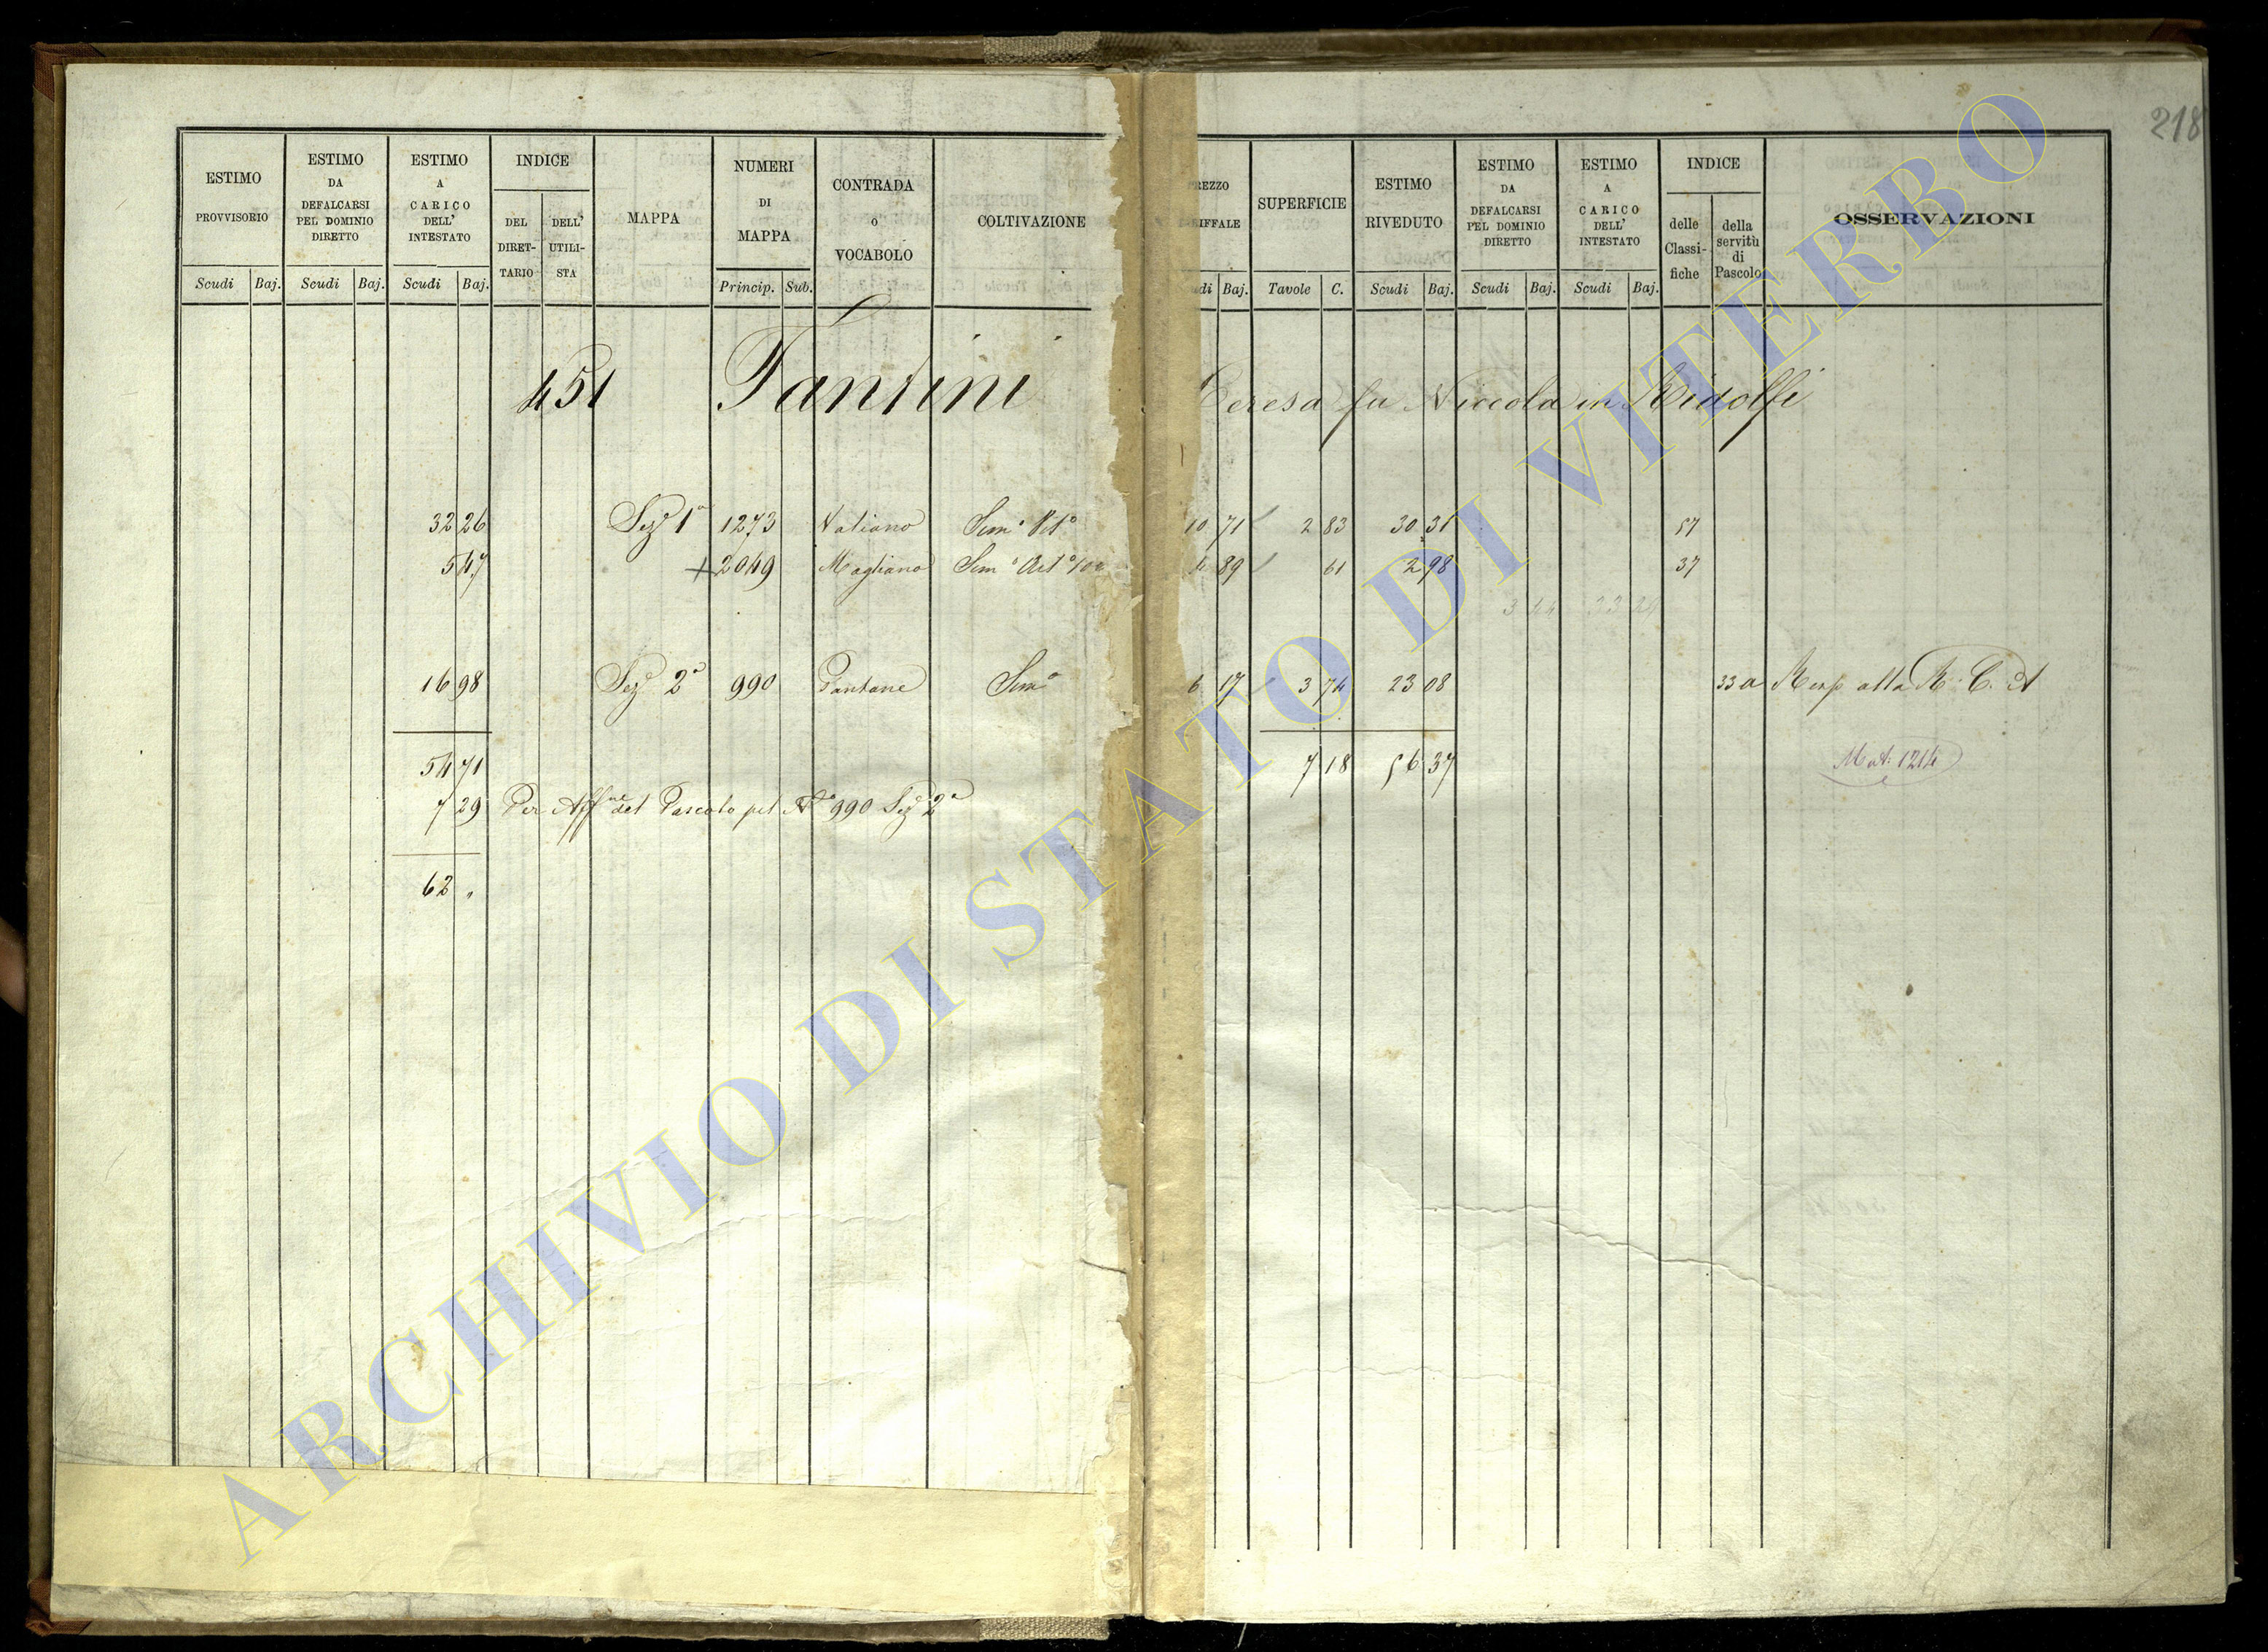 218
ESTIMO PROVVISORIO Scudi Baj.
ESTIMO DA DEFALCARSI PEL DOMINIO DIRETTO Scudi Baj.
ESTIMO A CARICO DELL' INTESTATO Scudi Baj.
INDICE DEL DIRET- TARIO DELL' UTILI- STA
MAPPA
NUMERI DI MAPPA Princip. Sub.
CONTRADA O VOCABOLO
COLTIVAZIONE
REZZO IFFALE udi Baj.
SUPERFICIE Tavole C.
ESTIMO RIVEDUTO Scudi Baj.
ESTIMO DA DEFALCARSI PEL DOMINIO DIRETTO Scudi Baj.
ESTIMO A CARICO DELL' INTESTATO Scudi Baj.
INDICE delle Classi- fiche della servitù di Pascolo
OSSERVAZIONI
451 Fantini Teresa fu Niccola in Ridolfi
32 26 Sez.e 1a 1273 Valiano Sem.o Vit.o 10 71 2 83 30 31 57
5 47 + 2049 Magliano Sem.o 4 89 61 2 98 37
3 44 33 24
16 98 Sez.e 2a 990 Pantane Sem.o 6 17 3 74 23 08 33 a Risp alla R. C. A
54 71 7 18 56 37 Mat: 1214
7 29 Per Aff.ne del Pascolo pel N.o 990 Sez.e 2a
62 "
ARCHIVIO DI STATO DI VITERBO